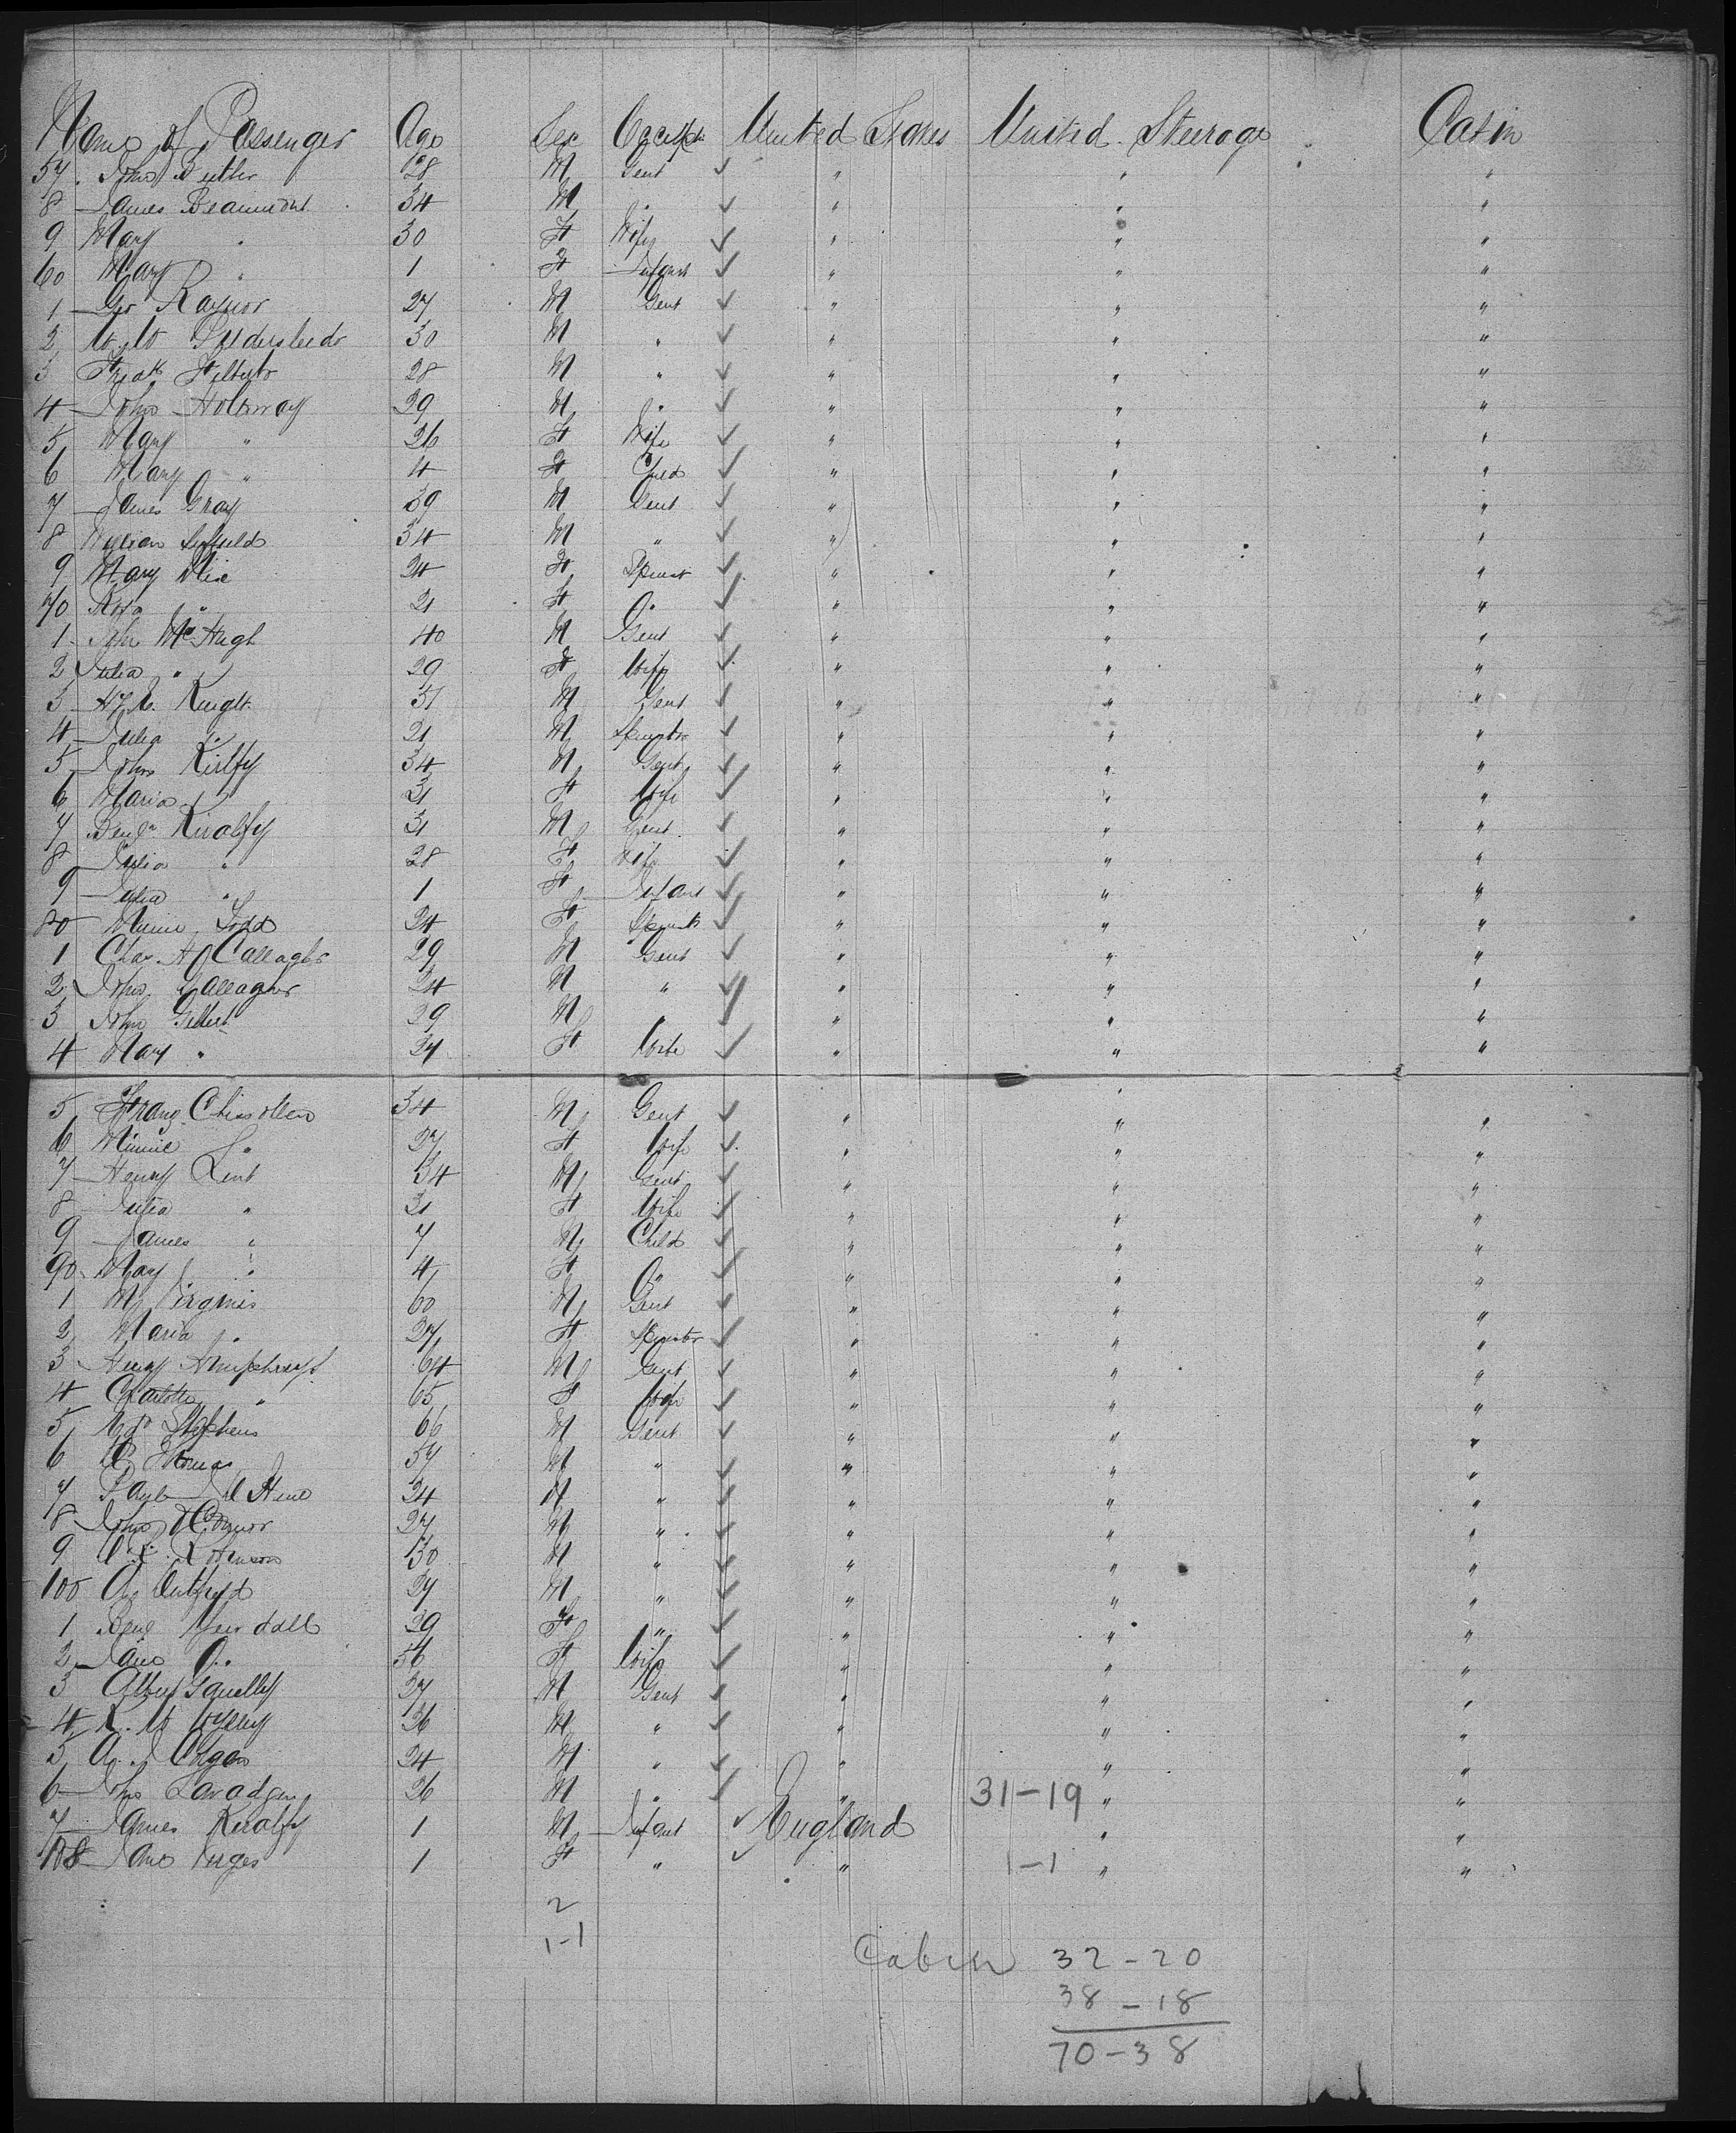 Name of Passenger Age Sex Occupn United States United Steerage Cabin
57 John Butler 28 M Gent ✓ " " "
8 James Beaumont 34 M " ✓ " " "
9 Mary " 30 F Wife ✓ " " "
60 Mary " 1 F Infant ✓ " " "
1 Geo Raynor 27 M Gent ✓ " " "
2 30 M " ✓ " " "
3 28 M " ✓ " " "
4 John Holloway 39 M " ✓ " " "
5 Mary " 26 F Wife ✓ " " "
6 Mary " 4 F Child ✓ " " "
7 James Gray 39 M Gent ✓ " " "
8 William 34 M " ✓ " " "
9 Mary 24 F Spinst ✓ " " "
70 Rosa " 21 F " ✓ " " "
1 John McHugh 40 M Gent ✓ " " "
2 Julia " 29 F Wife ✓ " " "
3 Knight 31 M Gent ✓ " " "
4 Julia " 21 M Spinster ✓ " " "
5 John Kiralfy 34 M Gent ✓ " " "
6 Maria " 31 F Wife ✓ " " "
7 Benjn Kiralfy 31 M Gent ✓ " " "
8 Julia " 28 F Wife ✓ " " "
9 Julia " 1 F Infant ✓ " " "
80 Minnie Todd 24 F Spinst ✓ " " "
1 Chas H O'Callaghr 29 M Gent ✓ " " "
2 John Gallagher 34 M " ✓ " " "
3 John Gilbert 29 M " ✓ " " "
4 Mary " 27 F Wife ✓ " " "
5 Franz 34 M Gent ✓ " " "
6 Minnie " 27 F Wife ✓ " " "
7 Henry Lent 34 M Gent ✓ " " "
8 Julia " 31 F Wife ✓ " " "
9 James " 7 M Child ✓ " " "
90 May " 4 F " ✓ " " "
1 M 60 M Gent ✓ " " "
2 Maria " 27 F Spinster ✓ " " "
3 Henry Humphreys 64 M Gent ✓ " " "
4 Charlotte " 65 F Wife ✓ " " "
5 Stephens 66 M Gent ✓ " " "
6 Thomas 37 M " ✓ " " "
7 34 M " ✓ " " "
8 John O'Connor 27 M " ✓ " " "
9 Robinson 30 M " ✓ " " "
100 A. 27 M " ✓ " " "
1 Benj 29 F " ✓ " " "
2 Jane " 56 F Wife ✓ " " "
3 Albert 27 M Gent ✓ " " "
4 R. W 26 M " ✓ " " "
5 A. J Colgan 24 M " ✓ " " "
6 Jno 26 M " ✓ " 31-19 " "
7 James Kiralfy 1 M Infant ✓ England " "
108 Jane 1 F " ✓ " 1-1 " "
2
1-1
Cabin 32-20
38-18
70-38